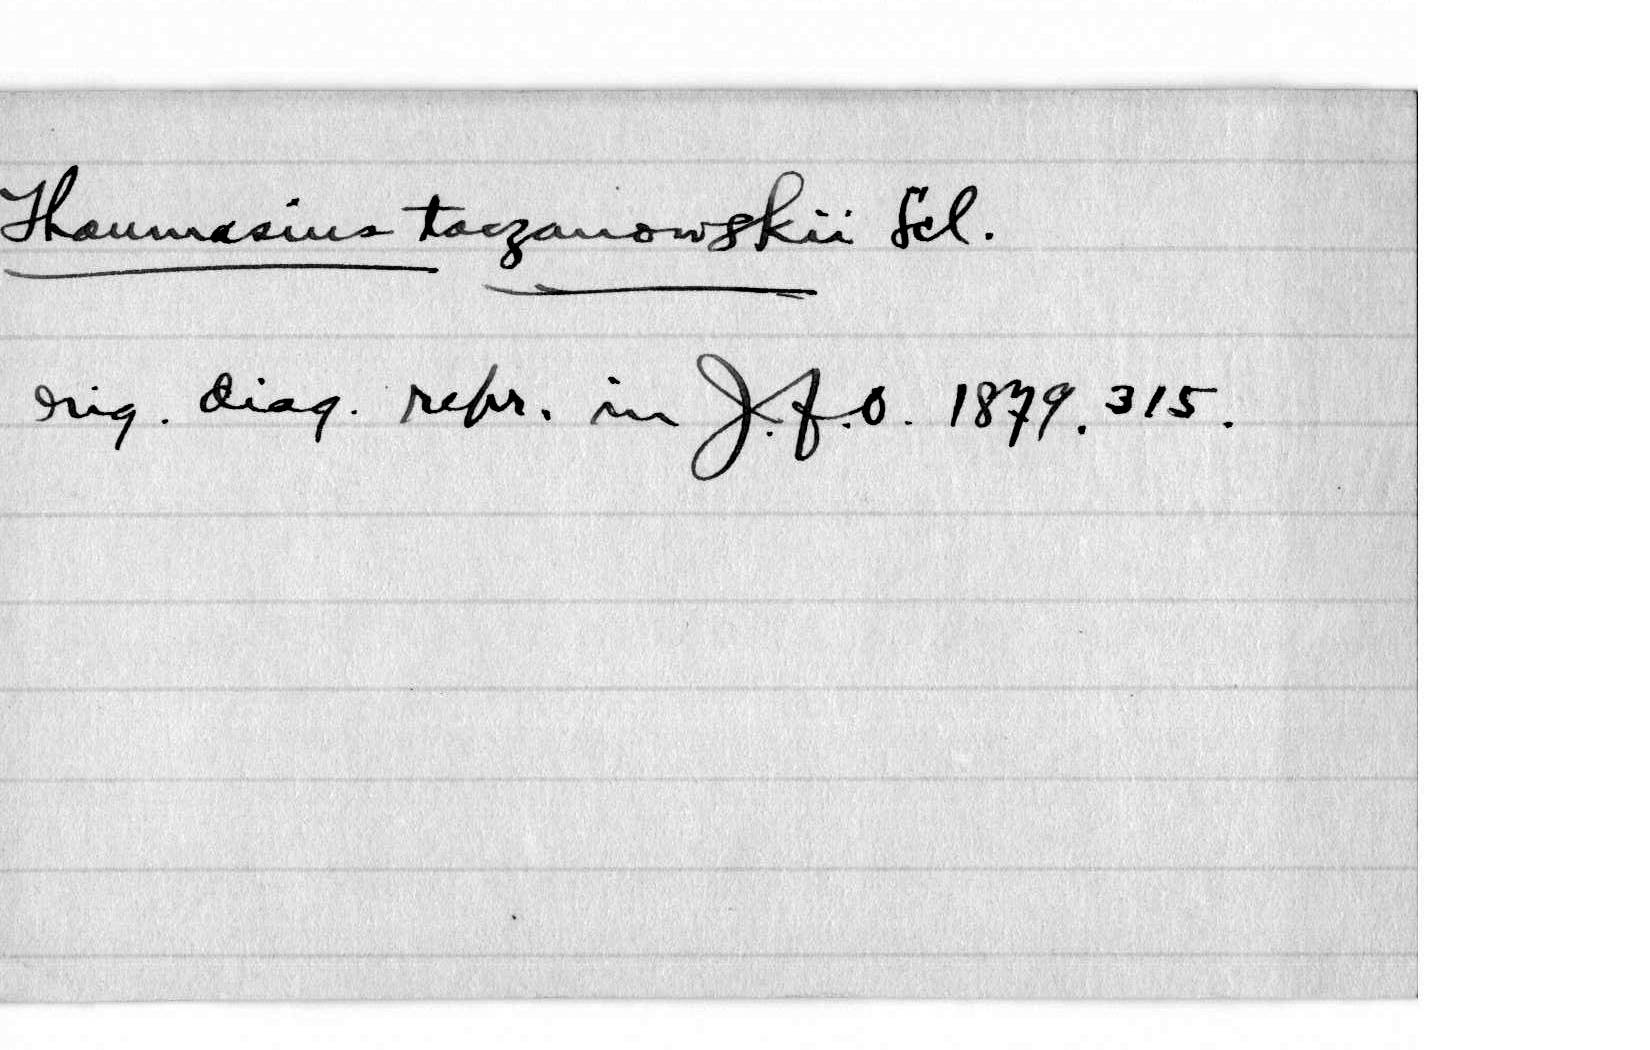 Thaumasius taczanowskii Scl.
orig. diag. repr. in J.f.O. 1879. 315.